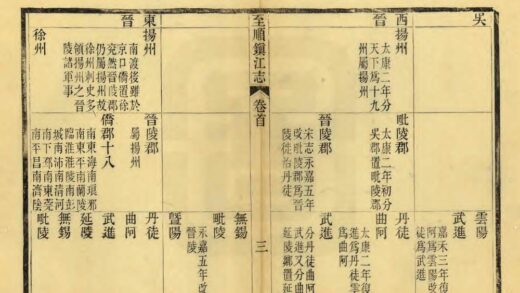 吳
雲陽
嘉禾三年復
阿爲雲陽改
徒爲武進
武進
西晉
揚州
太康二年分
天下爲十九
州屬揚州
毗陵郡
太康二年初分
吳郡置毗陵郡
丹徒
曲阿
太康二年復
進爲丹徒雲
爲曲阿
晉陵郡
宋志永嘉五年
改毗陵郡爲晉
陵徙治丹徒
武進
分丹徒曲阿
武進又分曲
延陵鄉置延
無錫
毗陵
永嘉五年改
晉陵
暨陽
至順鎮江志
卷首
三
東晉
揚州
南渡後雖於
京口僑置徐
兗然晉陵郡
仍屬揚州故
徐州刺史多
領揚州之晉
陵諸軍事
晉陵郡
屬揚州
丹徒
曲阿
徐州
僑郡十八
南東海南琅邪
南東平南蘭陵
臨淮淮陵南彭
城南沛南清河
南下邳南東莞
南平昌南濟陰
武進
延陵
無錫
毗陵